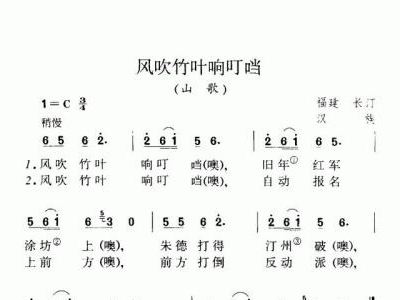 风吹竹叶响叮当
(山 歌)
1=C 3/4
福建 长汀
汉 族
稍慢
6 5 6 2. 2 6 1 5 6. 2 6 1 6 5.
1.风吹 竹叶 响叮 当(噢), 旧年① 红军
2.风吹 竹叶 响叮 当(噢), 自动 报名
5 6 1 6 3 0 5 6 1 2 6 1 6 2 6 1 5 6.
涂坊② 上(噢), 朱德 打得 汀州③ 破(噢),
上前 方(噢), 前方 打倒 反动 派(噢),